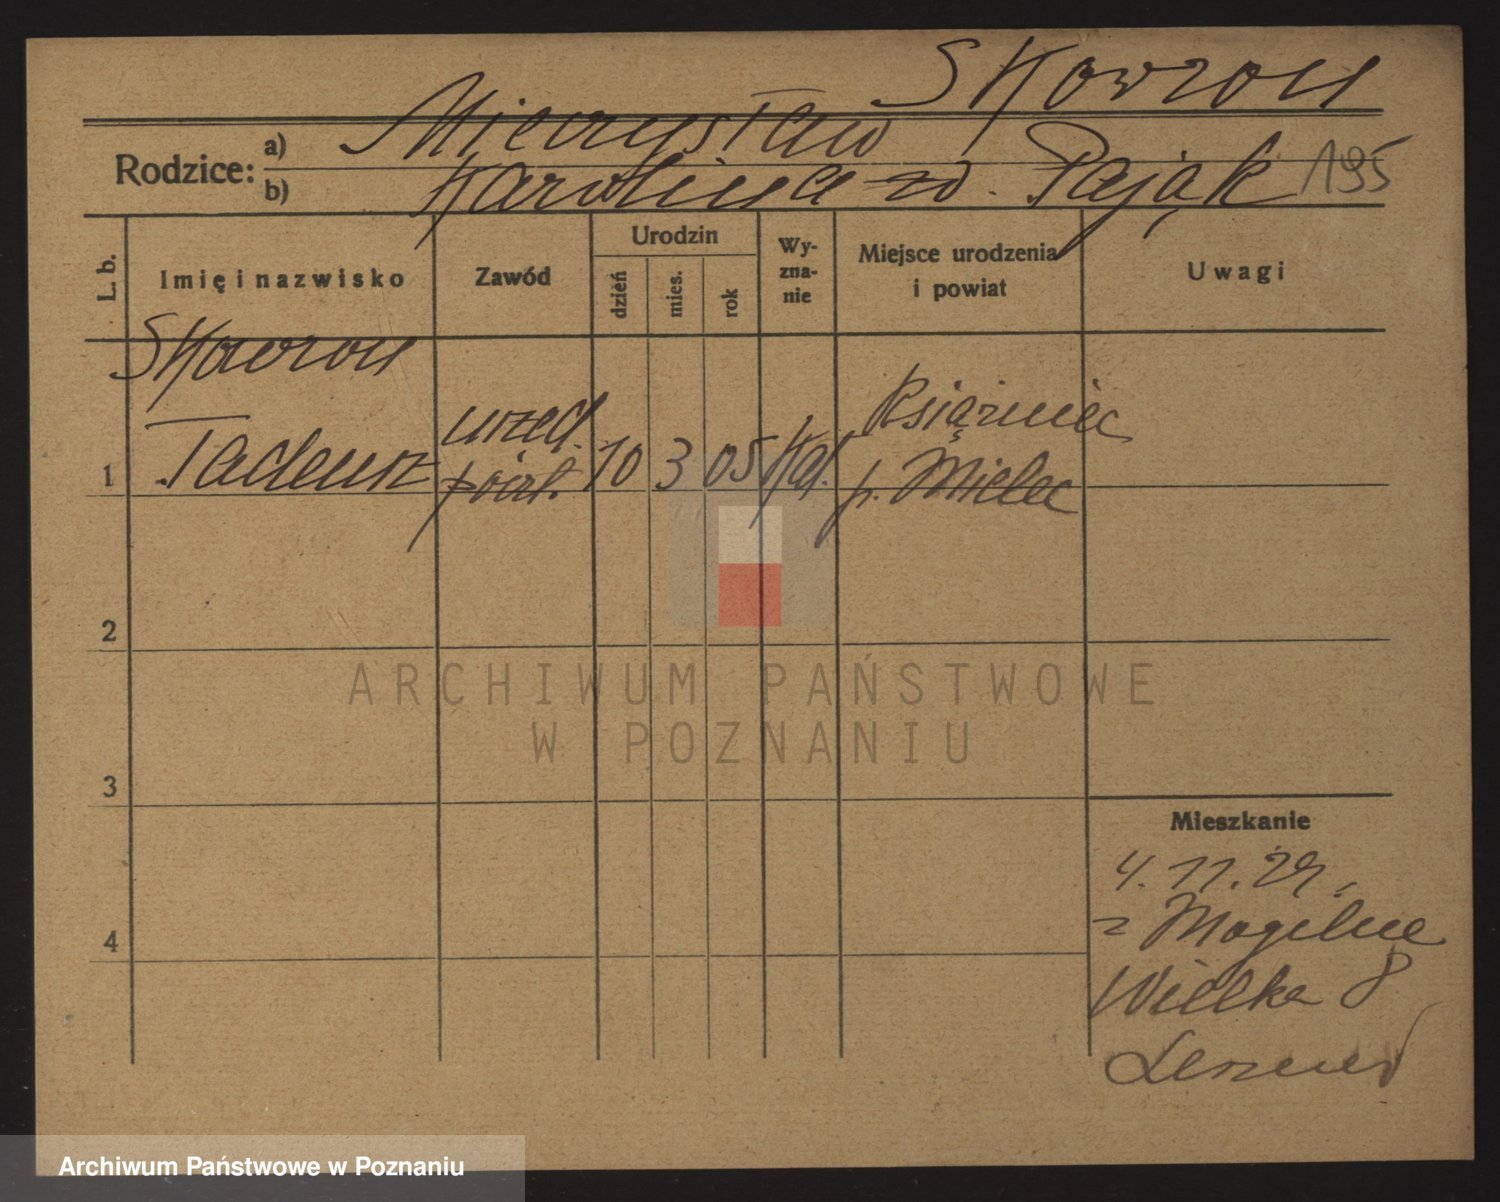 Skowron
Rodzice: a) Mieczysław
b) Karolina zd. Pająk 195
L. b. Imię i nazwisko Zawód Urodzin dzień mies. rok Wyzna-nie Miejsce urodzenia i powiat Uwagi
Skowron
1 Tadeusz urzęd. poczt. 10 3 05 Kat. Książnice p. Mielec
2
3
Mieszkanie
4. 11. 29.
4 z Mogilne
Wielka 8
ARCHIWUM PAŃSTWOWE
W POZNANIU
Archiwum Państwowe w Poznaniu